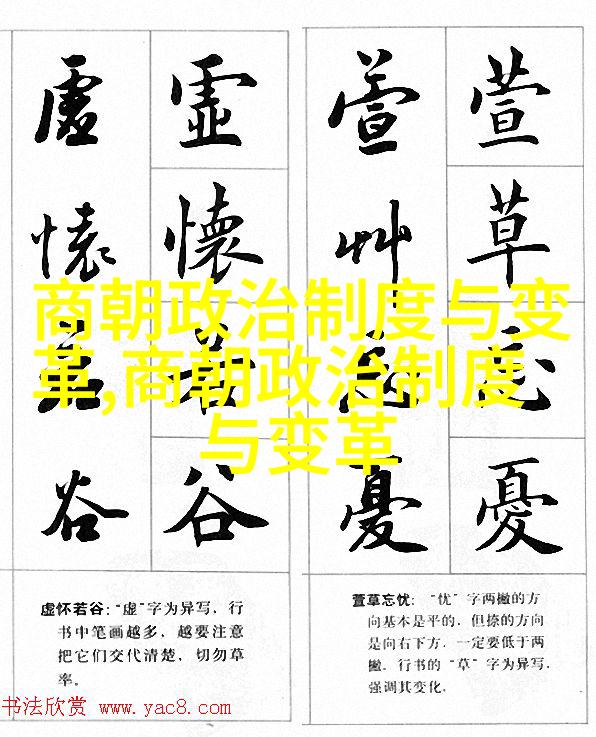 商朝政治制度与变
革,商朝政治制度
与变革
萱草忘憂
萱艸忘憂
虛懷若谷
虛懷若谷
虚怀若谷：“虚”字为异写，行
书中笔画越多，越要注意
把它们交代清楚，切勿草
率。
萱草忘忧：“忧”字两撇的方
向基本是平的，但捺的方向
是向右下方，一定要低于两
撇。行书的“草”字为异写，
强调其变化。
书法欣赏 www.yac8.com